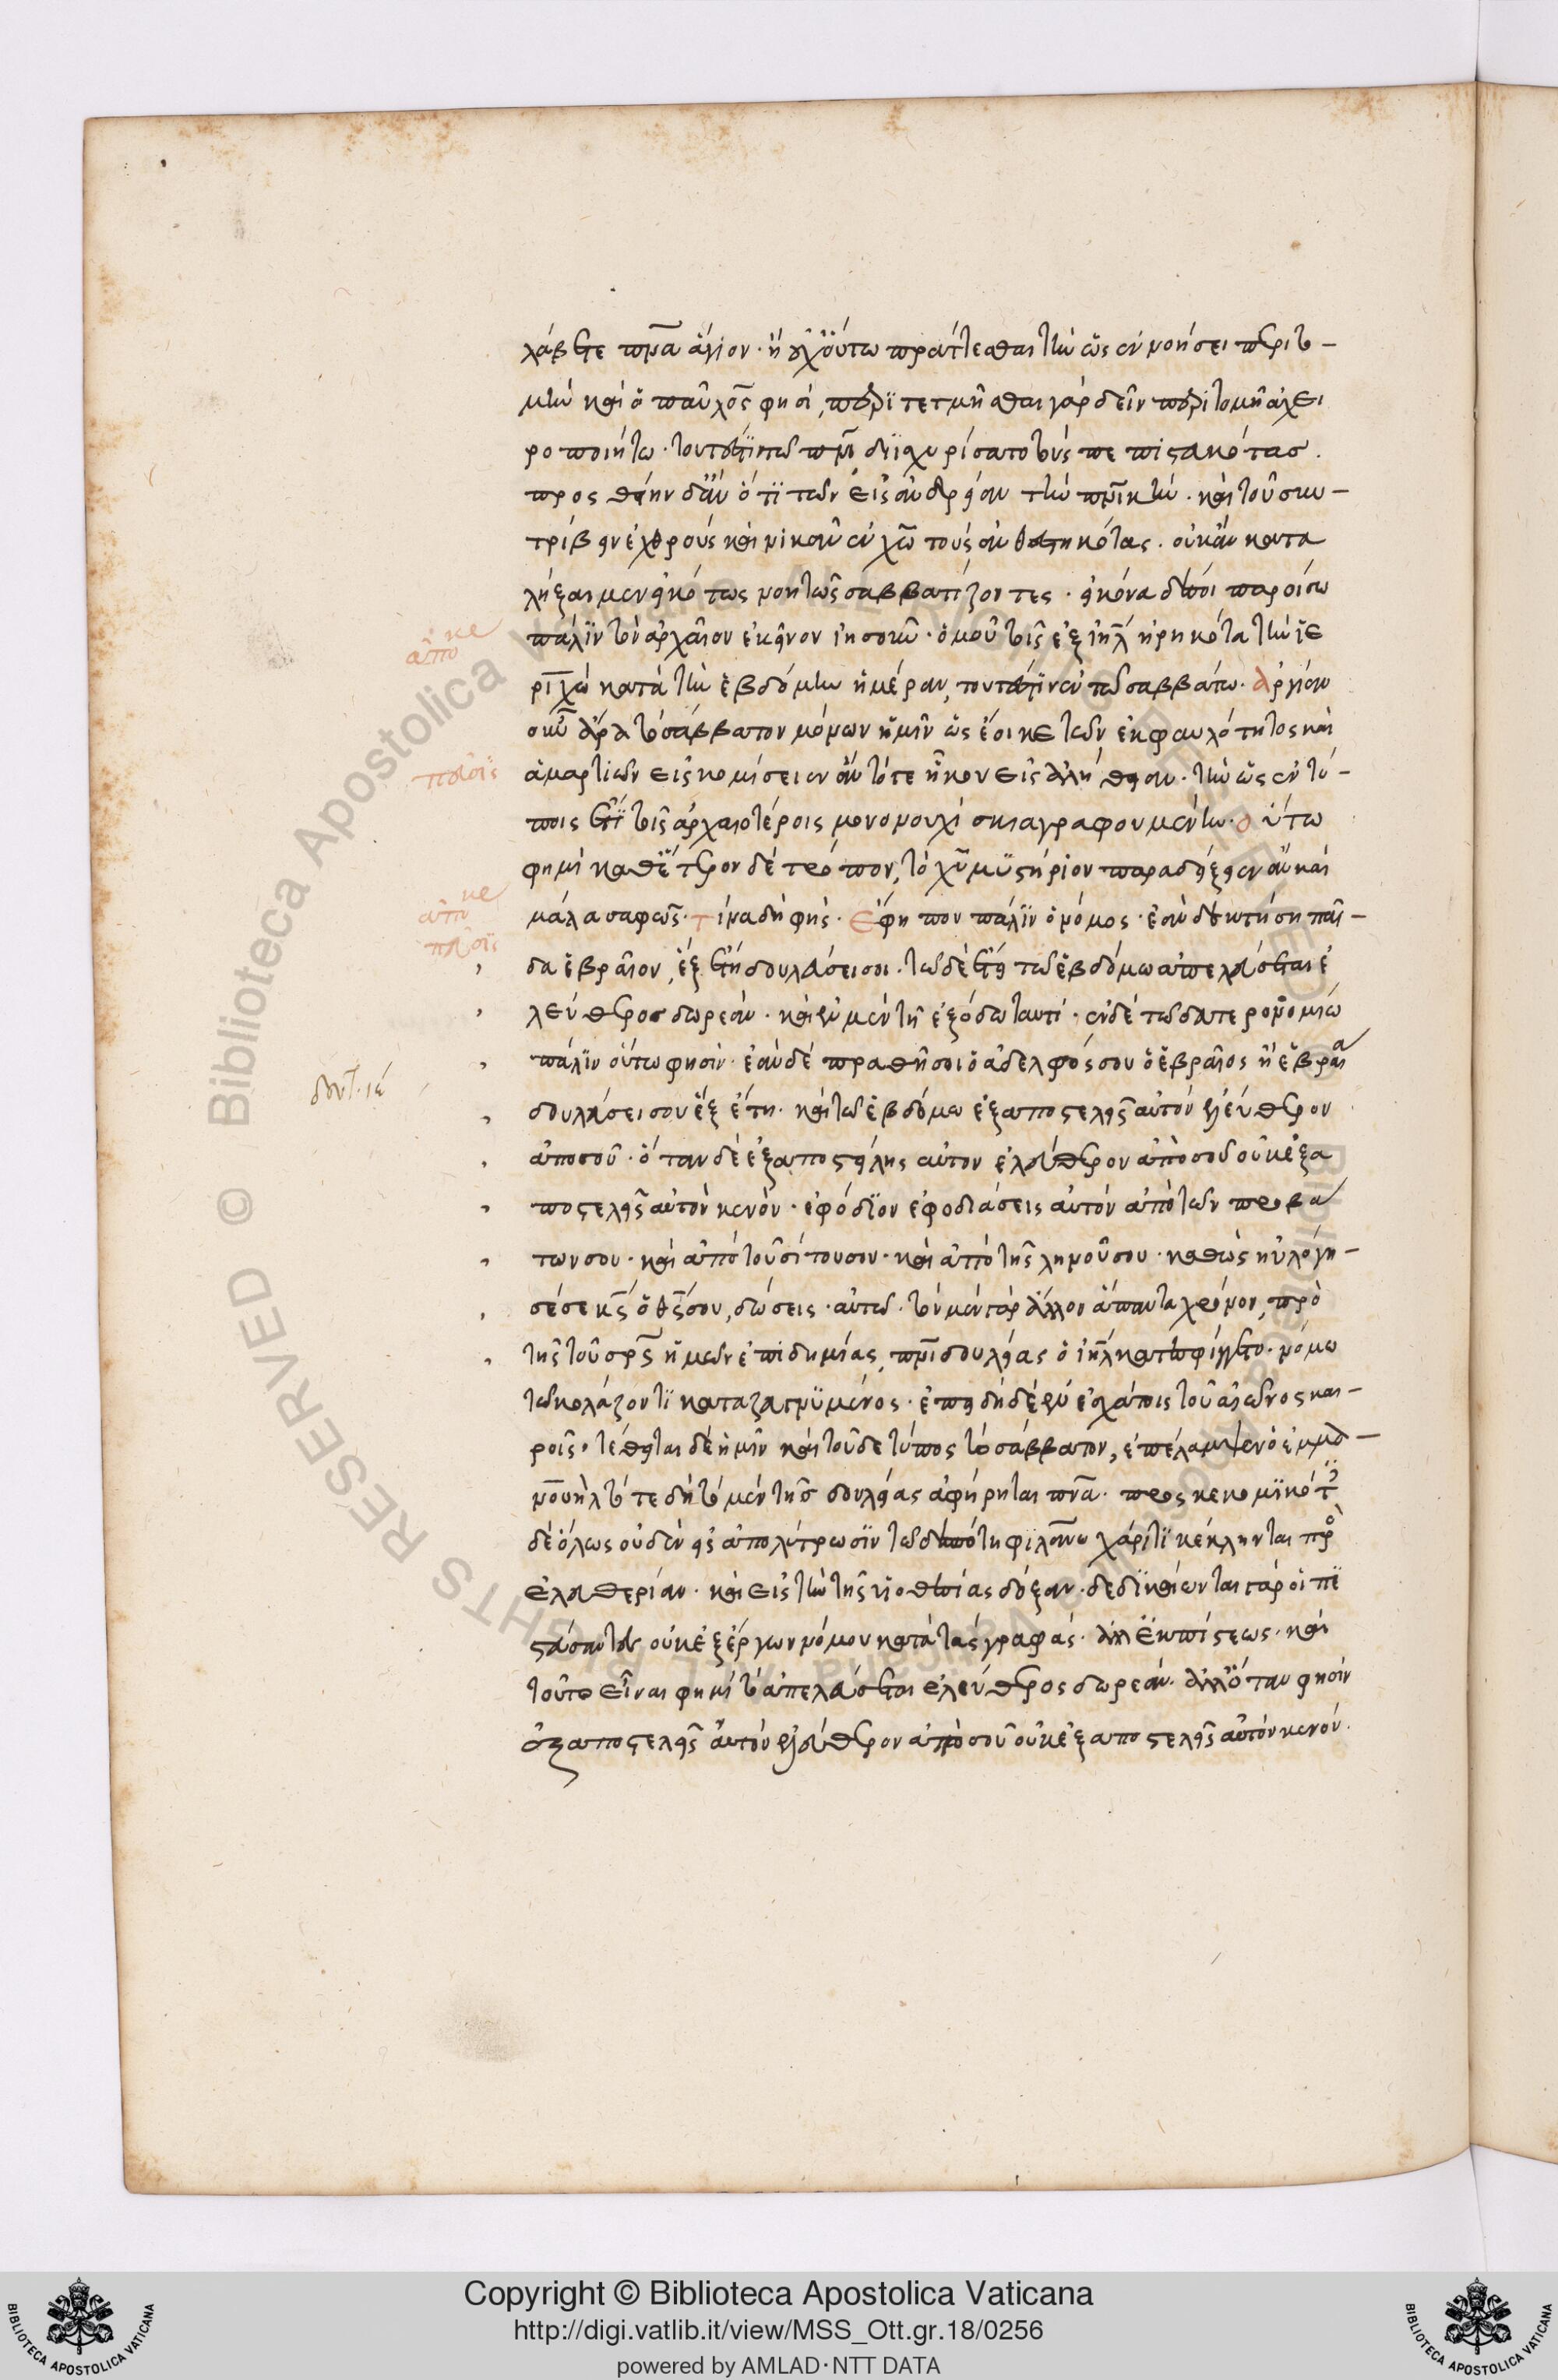 λάβετε πνα ἅγιον· ἢ οὐχ οὕτω πράττεσθαι τὴν ὡς ἐν νοήσει περιτο–
μὴν καὶ ὁ παῦλός φησί, περιτετμῆσθαι γὰρ δεῖν περιτομῆ ἀχει
ροποιήτω· τουτέστι τῶ πνι διϊσχυρίσατο τοὺς πεπιστευκότας.
προσθείην δ' ἂν ὅτι τῶν εἰς ἀνδρείαν τὴν πνικὴν· καὶ τοῦ συν–
τρίβειν ἐχθροὺς καὶ νικᾶν ἐν χω τοὺς ἀνθεστηκότας. οὐκ ἂν κατα
λήξαιμεν εἰκότως νοητῶς σαββατίζοντες· εἰκόνα δέ σοι παροίσω
πάλιν τὸν ἀρχαῖον ἐκεῖνον ἰησοῦν· ὁμοῦ τοῖς ἐξ ἰηλ ἡρηκότα τὴν ἱε
ριχὼ κατὰ τὴν ἑβδόμην ἡμέραν, τουτέστιν ἐν τῶ σαββάτω. ἀργίαν
οὖν ἄρα τὸ σάββατον μόνων ἡμῖν ὡς ἔοικε τῶν ἐκ φαυλότητος καὶ
ἁμαρτιῶν εἰσκομίσειεν ἂν τό τε ἧκον εἰς ἀλήθειαν· τὴν ὡς ἐν τύ–
ποις ἔτι τοῖς ἀρχαιοτέροις μονονουχὶ σκιαγραφουμένην· οὕτω
φημὶ καθ' ἕτερον δὲ τρόπον, τὸ χυ μυστήριον παραδείξειεν ἂν καὶ
μάλα σαφῶς· τίνα δὴ φής· ἔφη που πάλιν ὁ νόμος· ἐὰν δὲ κτήση παῖ–
δα ἑβραῖον, ἓξ ἔτη δουλεύσει σοι. τῶ δὲ ἔτει τῶ ἑβδόμω ἀπελεύσεται ἐ
λεύθερος δωρεάν· καὶ ἐν μὲν τῆ ἐξόδω ταυτί· ἐν δὲ τῶ δευτερονομίω
πάλιν οὕτω φησὶν· ἐὰν δὲ πραθῆ σοι ὁ ἀδελφός σου ὁ ἑβραῖος ἢ ἑβραία
δουλεύσει σου ἓξ ἔτη· καὶ τῶ ἑβδόμω ἐξαποστελεῖς αὐτὸν ἐλεύθερον
ἀπὸ σοῦ· ὅταν δὲ ἐξαποστείλης αὐτὸν ἐλεύθερον ἀπὸ σοῦ οὐκ ἐξα
ποστελεῖς αὐτὸν κενόν· ἐφόδιον ἐφοδιάσεις αὐτὸν ἀπὸ τῶν προβά
των σου· καὶ ἀπὸ τοῦ σίτου σου· καὶ ἀπὸ τῆς ληνοῦ σου· καθὼς ηὐλόγη–
σέ σε κς ὁ θς σου, δώσεις αὐτῶ· τὸν μὲν γὰρ ἄλλον ἅπαντα χρόνον, πρὸ
τῆς τοῦ σρς ἡμῶν ἐπιδημίας, πνι δουλείας ὁ ἰηλ κατεσφίγγετο· νόμω
τῶ κολάζοντι καταζατρυμένος· ἐπειδὴ δὲ ἐν ἐσχάτοις τοῦ αἰῶνος και–
ροῖς· τέθειται δὲ ἡμῖν καὶ τοῦδε τύπος τὸ σάββατον, ἐπέλαμψεν ὁ ἐμμα–
νουὴλ τότε δὴ τὸ μὲν τῆς δουλείας ἀφήρηται πνα· προσκεκομικότες
δὲ ὅλως οὐδὲν εἰς ἀπολύτρωσιν τῶ δεσπότη φιλανω χάριτι κέκληνται πρὸς
ἐλευθερίαν· καὶ εἰς τὴν τῆς υἱοθεσίας δόξαν· δεδικαίωνται γὰρ οἱ πι
στεύσαντες οὐκ ἐξ ἔργων νόμου κατὰ τὰς γραφάς· ἀλλ' ἐκ πίστεως· καὶ
τοῦτο εἶναι φημὶ τὸ ἀπελεύσεται ἐλεύθερος δωρεάν· ἀλλ' ὅταν φησὶν
ἐξαποστελεῖς αὐτὸν ἐλεύθερον ἀπὸ σοῦ οὐκ ἐξαποστελεῖς αὐτὸν κενόν.
Copyright © Biblioteca Apostolica Vaticana
http://digi.vatlib.it/view/MSS_Ott.gr.18/0256
powered by AMLAD·NTT DATA